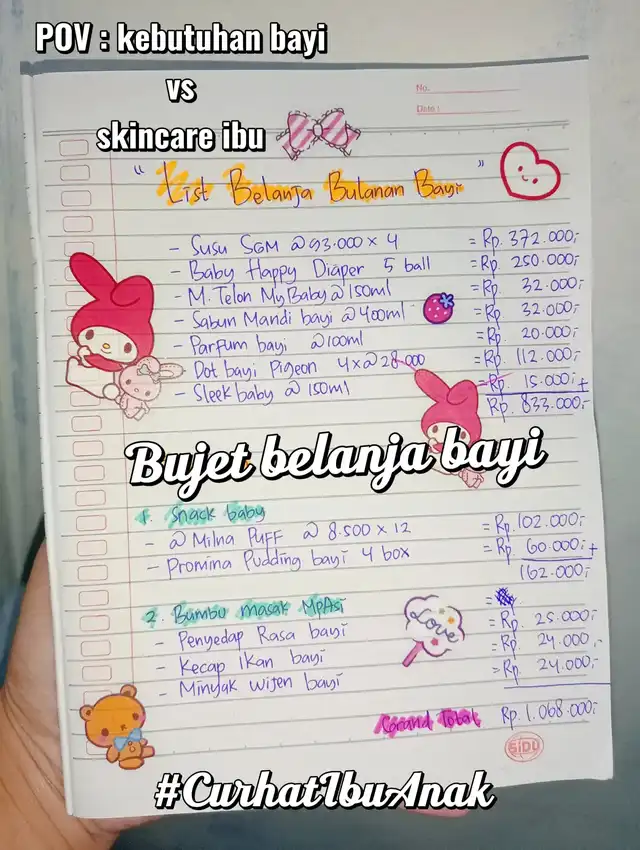 POV : kebutuhan bayi
vs
skincare ibu
No.
Date :
" List Belanja Bulanan Bayi "
- Susu SGM @93.000 x 4 = Rp. 372.000,-
- Baby Happy Diaper 5 ball = Rp. 250.000,-
- M. Telon My Baby @150ml = Rp. 32.000,-
- Sabun Mandi bayi @400ml = Rp. 32.000,-
- Parfum bayi @100ml = Rp. 20.000,-
- Dot bayi Pigeon 4x@28.000 = Rp. 112.000,-
- Sleek baby @150ml = Rp. 15.000,- +
Rp. 833.000,-
Bujet belanja bayi
1. Snack baby
- @ Milna PUFF @ 8.500 x 12 = Rp. 102.000,-
- Promina Pudding bayi 4 box = Rp. 60.000,- +
162.000,-
2. Bumbu masak MpAsi =
- Penyedap Rasa bayi = Rp. 25.000,-
- Kecap Ikan bayi = Rp. 24.000,-
- Minyak wijen bayi = Rp. 24.000,-
Love
Grand Total Rp. 1.068.000,-
SiDU
#CurhatIbuAnak